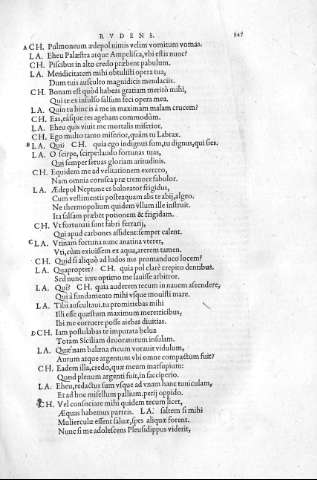 RVDENS.
A CH. Pulmoneum ædepol nimis velim vomitum vomas.
LA. Eheu Palæstra atque Ampelisca, vbi estis nunc?
CH. Piscibus in alto credo præbent pabulum.
LA. Mendicitatem mihi obtulisti opera tua,
Dum tuis ausculto magnidicis mendaciis.
CH. Bonam est quod habeas gratiam merito mihi,
Qui te ex insulso salsum feci opera mea.
LA. Quin tu hinc is à me in maximam malam crucem?
CH. Eas, easque res agebam commodùm.
LA. Eheu quis viuit me mortalis miserior,
CH. Ego multo tanto miserior, quàm tu Labrax.
B LA. Qui? CH. quia ego indignus sum, tu dignus, qui sies.
LA. O scirpe, scirpe laudo fortunas tuas,
Qui semper seruas gloriam aritudinis.
CH. Equidem me ad velitationem exerceo,
Nam omnia corusca præ tremore fabulor.
LA. Ædepol Neptune es balneator frigidus,
Cum vestimentis postquam abs te abij, algeo.
Ne thermopolium quidem vllum ille instruit.
Ita salsam præbet potionem & frigidam.
CH. Vt fortunati sunt fabri ferrarij,
Qui apud carbones assident: semper calent.
C LA. Vtinam fortuna nunc anatina vterer,
Vti, cùm exiuissem ex aqua, arerem tamen.
CH. Quid si aliquò ad ludos me pro manduco locem?
LA. Quapropter? CH. quia pol clarè crepito dentibus.
Sed nunc iure optimo me lauisse arbitror.
LA. Qui? CH. quia auderem tecum in nauem ascendere,
Qui à fundamento mihi vsque mouisti mare.
LA. Tibi auscultaui, tu promittebas mihi
Illi esse quæstum maximum meretricibus,
Ibi me corruere posse aiebas diuitias.
D CH. Iam postulabas te impurata belua
Totam Siciliam deuoraturum insulam.
LA. Quænam balæna meum vorauit vidulum,
Aurum atque argentum vbi omne compactum fuit?
CH. Eadem illa, credo, quæ meum marsupium:
Quod plenum argenti fuit, in sacciperio.
LA. Eheu, redactus sum vsque ad vnam hanc tuniculam,
Et ad hoc misellum pallium, perij oppido.
CH. Vel consociare mihi quidem tecum licet,
Æquas habemus parteis. LA. saltem si mihi
Mulierculæ essent saluæ, spes aliquæ forent.
Nunc si me adolescens Pleusidippus viderit,